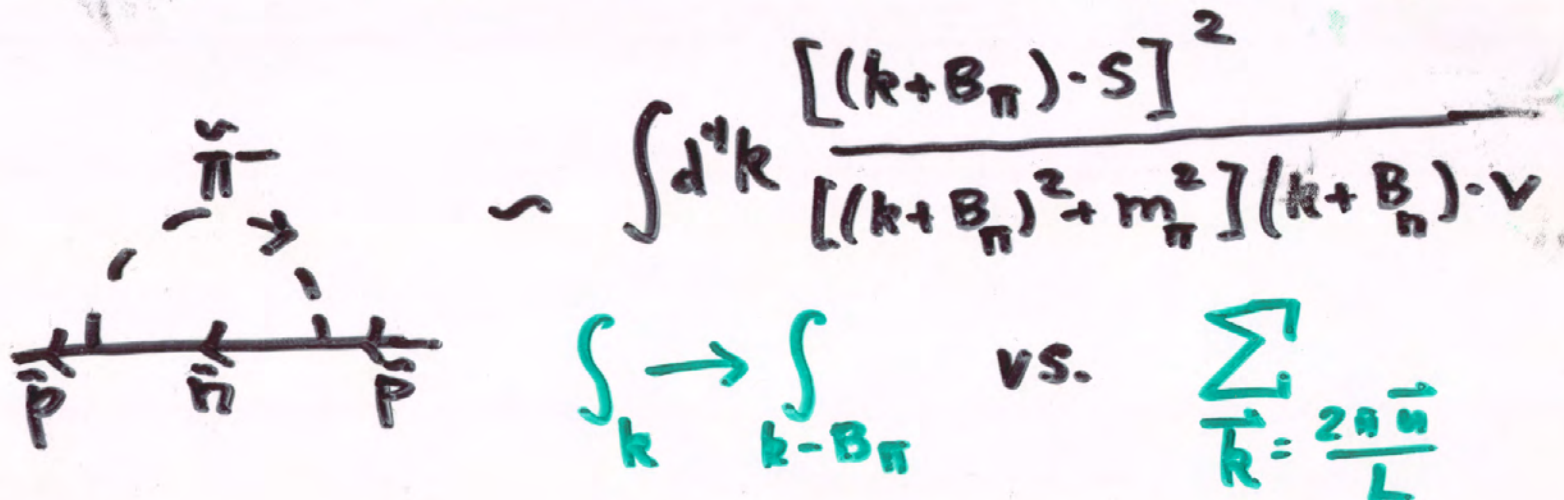 π̃⁻
p̃ ñ p̃
~ ∫d⁴k [(k+B_π)·S]² / [(k+B_π)²+m_π²](k+B_n)·v
∫_k → ∫_{k-B_π} vs. Σ_{k⃗ = 2πn⃗/L}